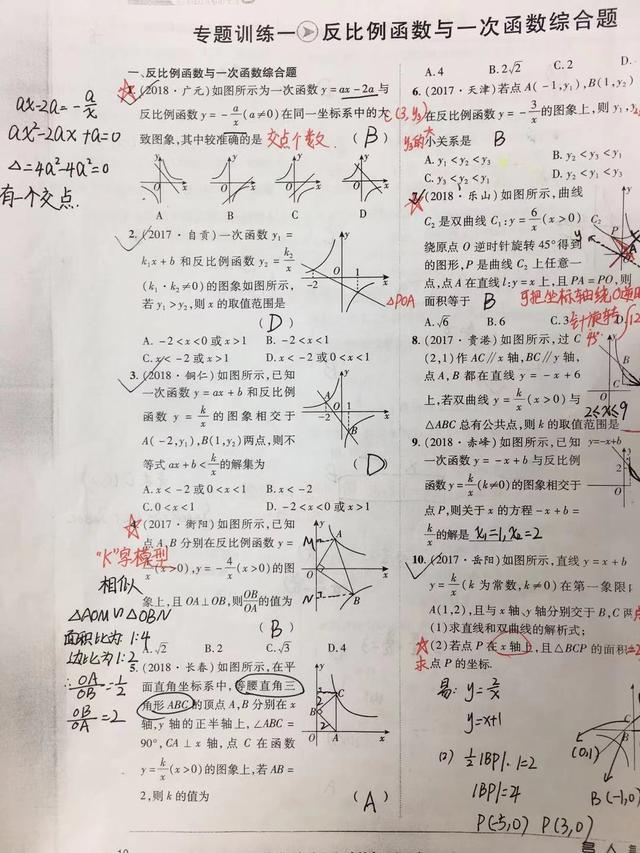 专题训练一 反比例函数与一次函数综合题
一、反比例函数与一次函数综合题
1.(2018·广元)如图所示为一次函数 y=ax-2a 与
反比例函数 y=-a/x(a≠0)在同一坐标系中的大
致图象,其中较准确的是 交点个数 (B)
A B C D
ax-2a=-a/x
ax²-2ax+a=0
△=4a²-4a²=0
有一个交点.
2.(2017·自贡)一次函数 y₁=
k₁x+b 和反比例函数 y₂=k₂/x
(k₁·k₂≠0)的图象如图所示,
若 y₁>y₂,则 x 的取值范围是
(D)
△POA
A.-2<x<0或x>1 B.-2<x<1
C.x<-2或x>1 D.x<-2或0<x<1
3.(2018·铜仁)如图所示,已知
一次函数 y=ax+b 和反比例
函数 y=k/x 的图象相交于
A(-2,y₁),B(1,y₂)两点,则不
等式 ax+b<k/x 的解集为 (D)
A.x<-2或0<x<1 B.x<-2
C.0<x<1 D.-2<x<0或x>1
4.(2017·衡阳)如图所示,已知
点A,B分别在反比例函数 y=
/x(x>0),y=-4/x(x>0)的图
象上,且 OA⊥OB,则OB/OA的值为
(B)
A.√2 B.2 C.√3 D.4
"K"字模型
相似
△AOM∽△OBN
面积比为1:4
边比为1:2
∴OA/OB=1/2
OB/OA=2
5.(2018·长春)如图所示,在平
面直角坐标系中,等腰直角三
角形ABC的顶点A,B分别在x
轴,y轴的正半轴上,∠ABC=
90°,CA⊥x轴,点C在函数
y=k/x(x>0)的图象上,若AB=
2,则k的值为 (A)
A.4 B.2√2 C.2 D.
6.(2017·天津)若点A(-1,y₁),B(1,y₂)
C(3,y₃)
在反比例函数 y=-3/x 的图象上,则 y₁,
y₃的大
小关系是 B
A.y₁<y₂<y₃ B.y₂<y₃<y₁
C.y₃<y₂<y₁ D.
7.(2018·乐山)如图所示,曲线
C₂是双曲线 C₁:y=6/x(x>0)
绕原点O逆时针旋转45°得到
的图形,P是曲线C₂上任意一
点,点A在直线l:y=x上,且PA=PO,则
面积等于 B 可把坐标轴绕O逆时
针旋转45°
A.√6 B.6 C.3 D.
8.(2017·贵港)如图所示,过C
(2,1)作AC∥x轴,BC∥y轴,
点A,B都在直线 y=-x+6
上,若双曲线 y=k/x(x>0)与
2≤k≤9
△ABC总有公共点,则k的取值范围是
9.(2018·赤峰)如图所示,已知
y=-x+b
一次函数 y=-x+b 与反比例
函数 y=k/x(k≠0)的图象相交于
点P,则关于x的方程-x+b=
k/x的解是 x₁=1,x₂=2
10.(2017·岳阳)如图所示,直线 y=x+b
y=k/x(k为常数,k≠0)在第一象限
A(1,2),且与x轴、y轴分别交于B,C两
(1)求直线和双曲线的解析式;
(2)若点P在x轴上,且△BCP的面积=2
求点P的坐标.
易:y=2/x
y=x+1
(2) 1/2|BP|·1=2
|BP|=4
P(-5,0) P(3,0)
(0,1)
B(-1,0)